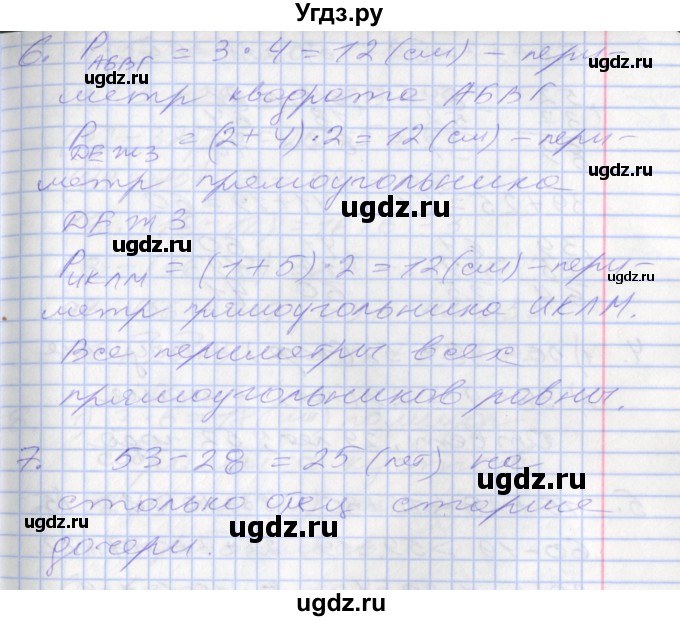 Угдз.ру
6. РАБВГ = 3 · 4 = 12 (см) – пери–
метр квадрата АБВГ
РДЕЖЗ = (2+4) · 2 = 12 (см) – пери–
метр прямоугольника
ДЕЖЗ
РИКЛМ = (1+5) · 2 = 12 (см) – пери–
метр прямоугольника ИКЛМ.
Все периметры всех
прямоугольников равны.
7. 53 – 28 = 25 (лет) на
столько отец старше
дочери.
ugdz.ru
ugdz.ru
ugdz.ru
ugdz.ru
ugdz.ru
ugdz.ru
ugdz.ru
ugdz.ru
ugdz.ru
ugdz.ru
ugdz.ru
ugdz.ru
ugdz.ru
ugdz.ru